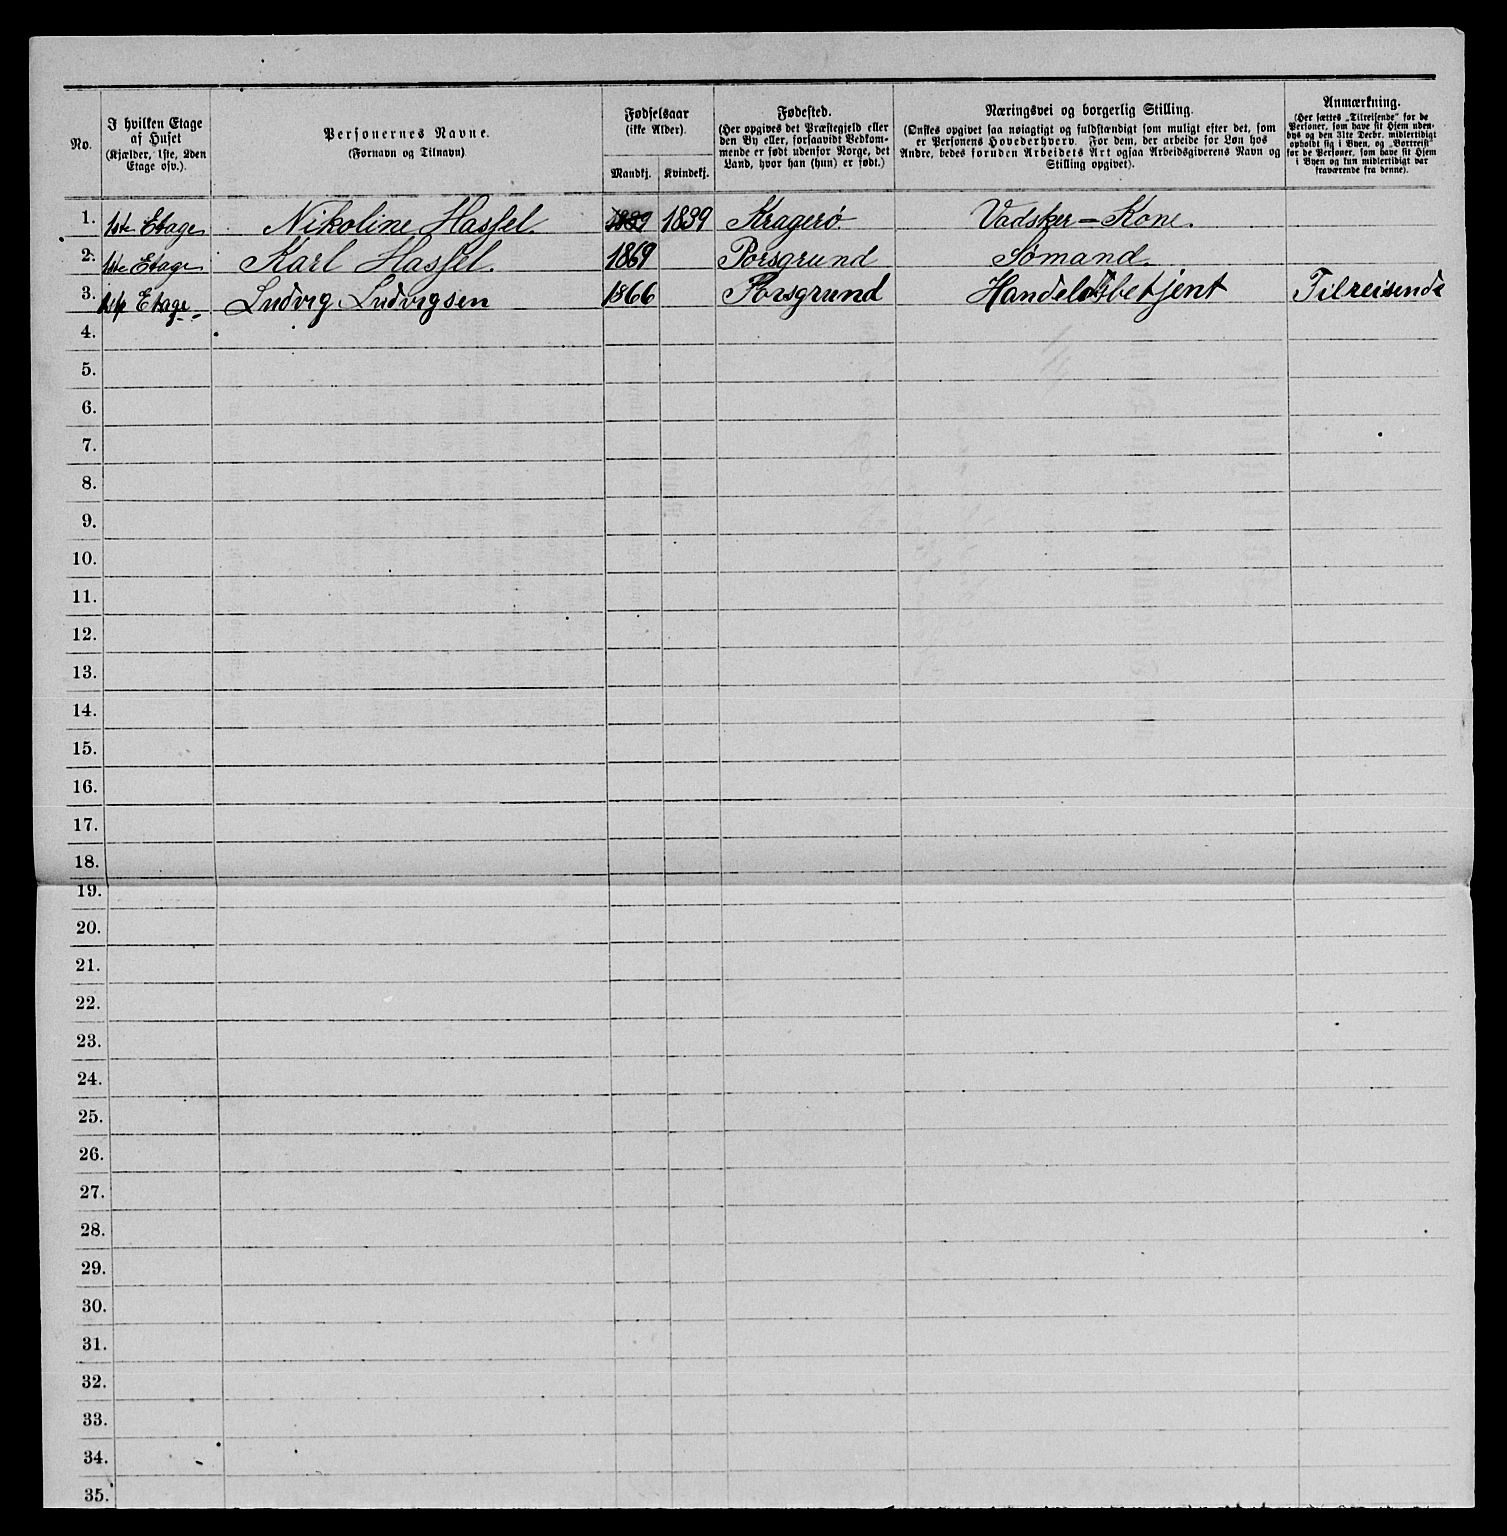 No.
I hvilken Etage
af Huset
(Kjælder, 1ste, 2den
Etage osv.).
Personernes Navne.
(Fornavn og Tilnavn)
Fødselsaar
(ikke Alder).
Mandkj. Kvindekj.
Fødested.
(Her opgives det Præstegjeld eller
den By eller, forsaavidt Vedkom-
mende er født udenfor Norge, det
Land, hvor han (hun) er født.)
Næringsvei og borgerlig Stilling.
(Ønskes opgivet saa nøiagtigt og fuldstændigt som muligt efter det, som
er Personens Hovederhverv. For dem, der arbeide for Løn hos
Andre, bedes foruden Arbeidets Art ogsaa Arbeidsgiverens Navn og
Stilling opgivet).
Anmærkning.
(Her sættes „Tilreisende“ for de
Personer, som have sit Hjem uden-
bys og den 31te Decbr. midlertidigt
opholdt sig i Byen, og „Bortreist“
for de Personer, som have sit Hjem
i Byen og kun midlertidigt var
fraværende fra denne).
1. 1ste Etage Nikoline Hassel. 1839 1839 Kragerø. Vadsker-Kone.
2. 1ste Etage Karl Hassel. 1869 Porsgrund Sømand.
3. Etage Ludvig Ludvigsen 1866 Porsgrund Handelsbetjent Tilreisende
4.
5.
6.
7.
8.
9.
10.
11.
12.
13.
14.
15.
16.
17.
18.
19.
20.
21.
22.
23.
24.
25.
26.
27.
28.
29.
30.
31.
32.
33.
34.
35.